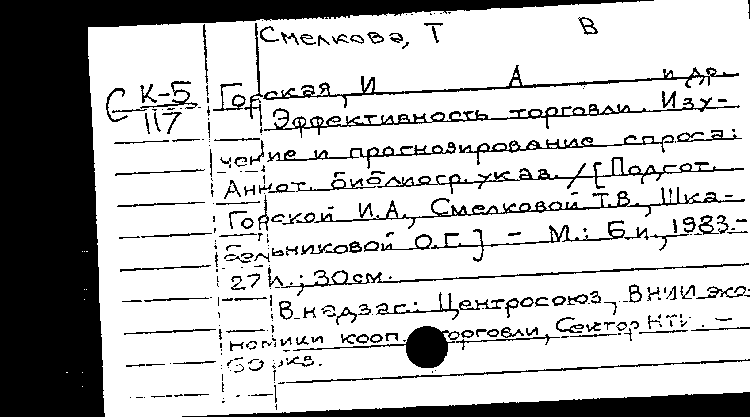 Смелкова, Т В
С К-5
117
Горская, И А и др.
Эффективность торговли. Изу-
чение и прогнозирование спроса:
Аннот. библиогр. указ. / [Подгот.
Горской И.А., Смелковой Т.В., Шка-
бельниковой О.Г.] - М.: Б.и., 1983.-
27 л.; 30 см.
В надзаг.: Центросоюз, ВНИИ эко-
номики кооп. торговли, Сектор НТИ. -
60 экз.